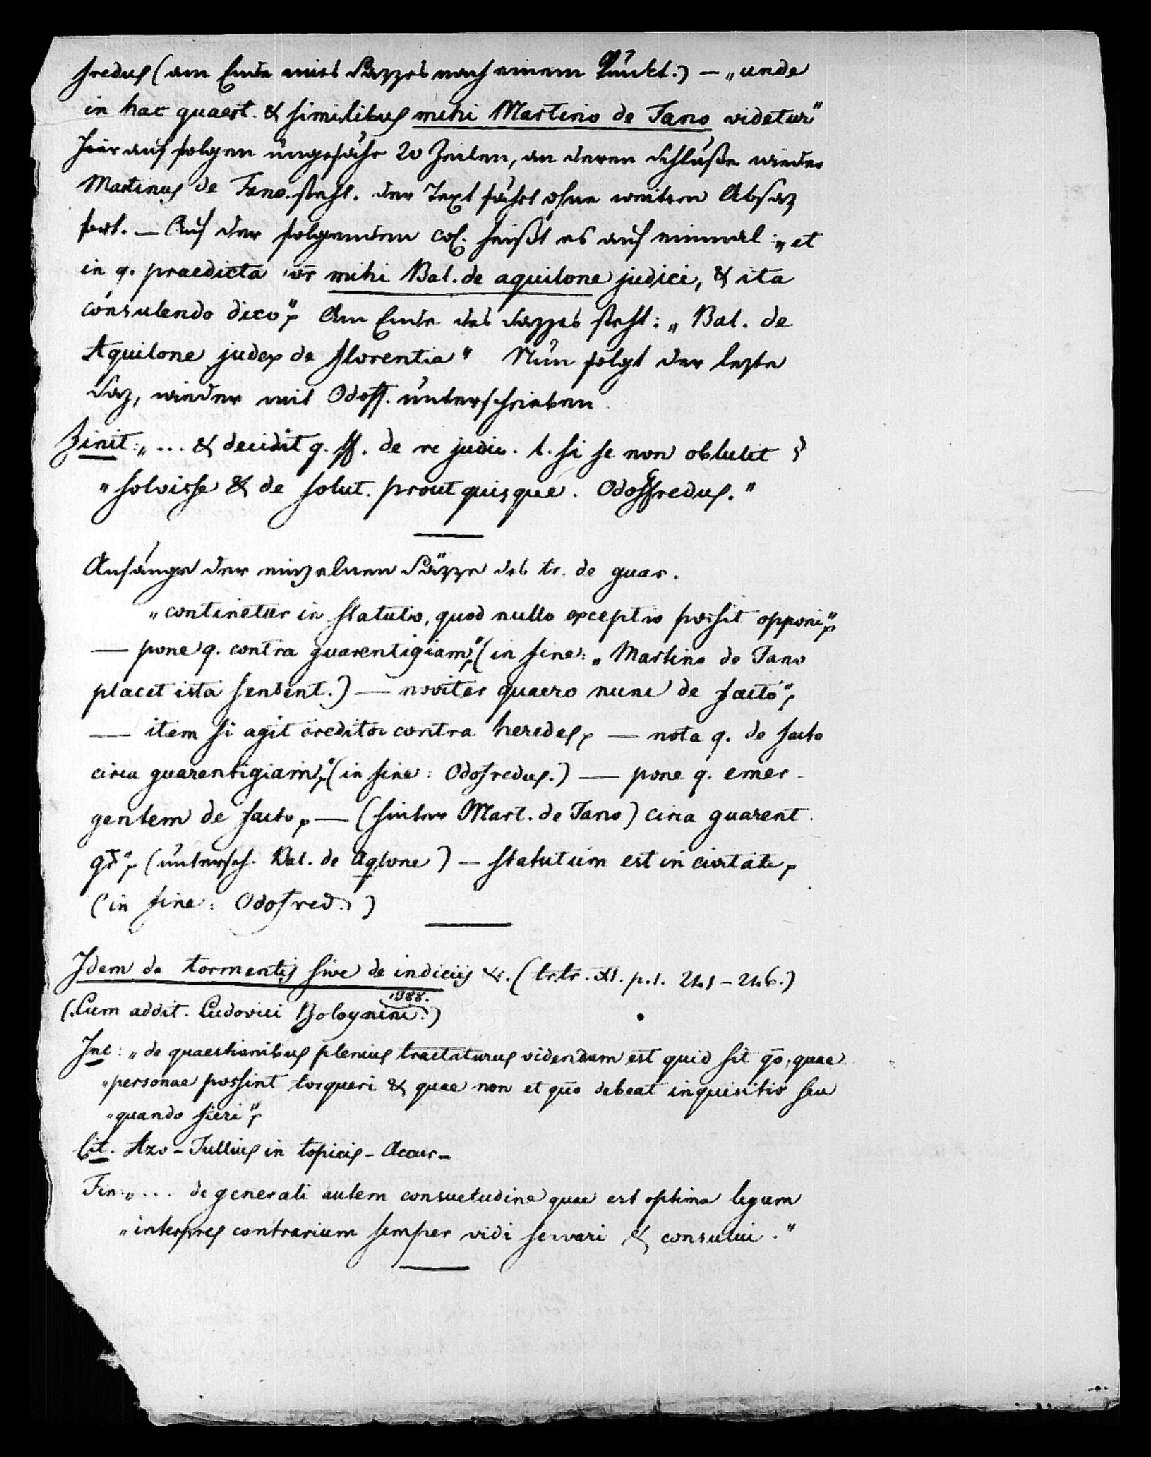 fredus (am Ende eines Sazzes nach einem Punkt.) — „unde
in hac quaest. & similibus mihi Martino de Fano videtur“
Hierauf folgen ungefähr 20 Zeilen, an deren Schluße wieder
Martinus de Fano steht. der Text fährt ohne weitern Absaz
fort. — Auf der folgenden col. heißt es auf einmal: „et
in q. praedicta vr mihi Bal. de aquilone judici, & ita
consulendo dico“, Am Ende des Sazzes steht: „Bal. de
Aquilone judex de florentia“ Nun folgt der lezte
Saz, wieder mit Odoff. unterschrieben.
Finit: „... & decidit q. ff. de re judic. l. si se non obtulit §
„solvisse & de solut. prout quisque. Odoffredus.“
Anfänge der einzelnen Säzze des tr. de guar.
„continetur in statuto, quod nullo exceptio possit opponi“,
— pone q. contra guarentigiam“, (in fine: „Martino de Fano
placet ista sentent.) — noviter quaero nunc de facto“,
— item si agit creditor contra heredes, — nota q. de facto
circa guarentigiam“, (in fine: Odofredus.) — pone q. emer-
gentem de facto, — (hinten Mart. de Fano) circa guarent.
(untersch. Bal. de Aqlone) — statutum est in civitate,
(in fine: Odofred.)
Idem de tormentis sive de indiciis &. (tr. tr. XI. p. 1. 241 - 246.)
(Cum addit. Ludovici Bolognini.)
Inc: „de quaestionibus plenius tractaturus videndum est quid sit qo, quae
„personae possint torqueri & quae non et quo debeat inquisitio seu
„quando fieri“,
Cit. Azo - Tullius in topicis - Accur -
Fin: „... de generali autem consuetudine quae est optima legum
„interpres contrarium semper vidi servari & consului.“